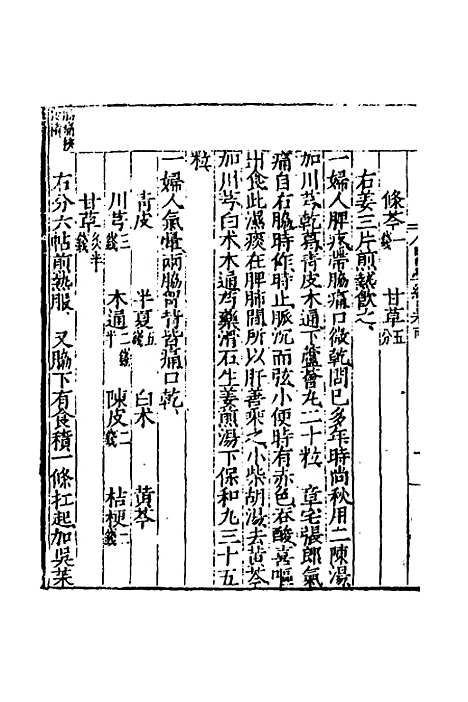 條芩一錢　甘草五分
右姜三片煎熱飲之、
一婦人脾疼帶脇痛口微乾問已多年時尚秋用二陳湯
加川芎乾葛青皮木通下蘆薈丸二十粒　章宅張郎氣
痛自右脇時作時止脉沉而弦小便時有赤色吞酸喜嘔
出食此濕痰在脾肺間所以肝善乘之小柴胡湯去黄芩
加川芎白术木通芍藥滑石生姜煎湯下保和丸三十五
粒
一婦人氣尪兩脇胷背皆痛口乾、
青皮　半夏五　白术　黄芩
川芎三錢　木通二錢半　陳皮二錢　桔梗二錢
甘草錢半
右分六帖煎熱服　又脇下有食積一條扛起加吳茱